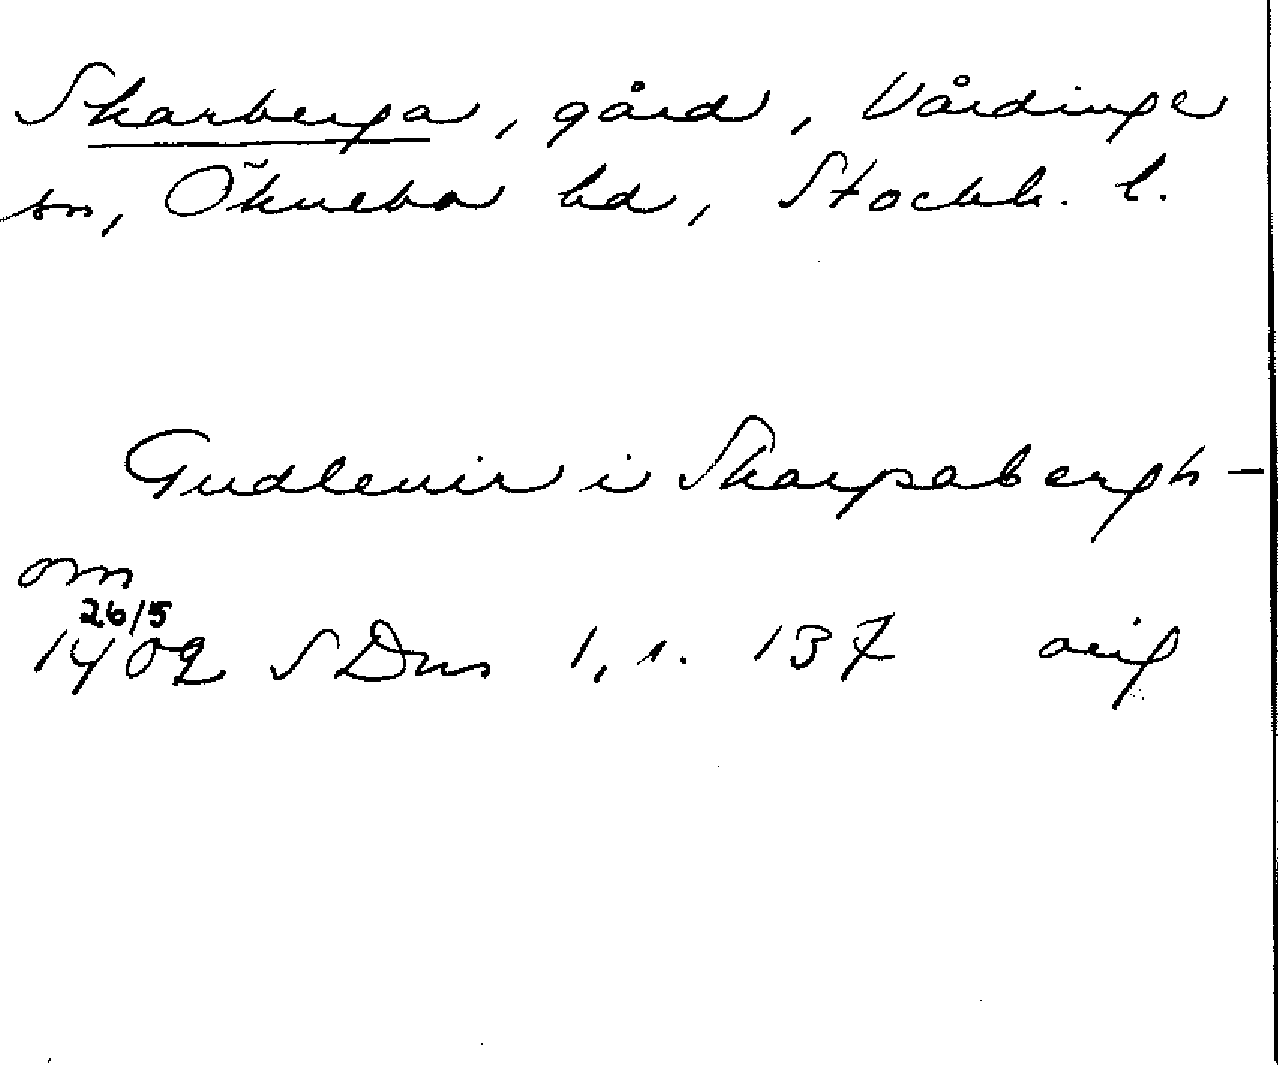 Skarberga, gård, Vårdinge
sn, Öknebo hd, Stockh. l.
Gudleuir i Skarpabergh-
om
26/5
1402 SDns 1, s. 137 orig